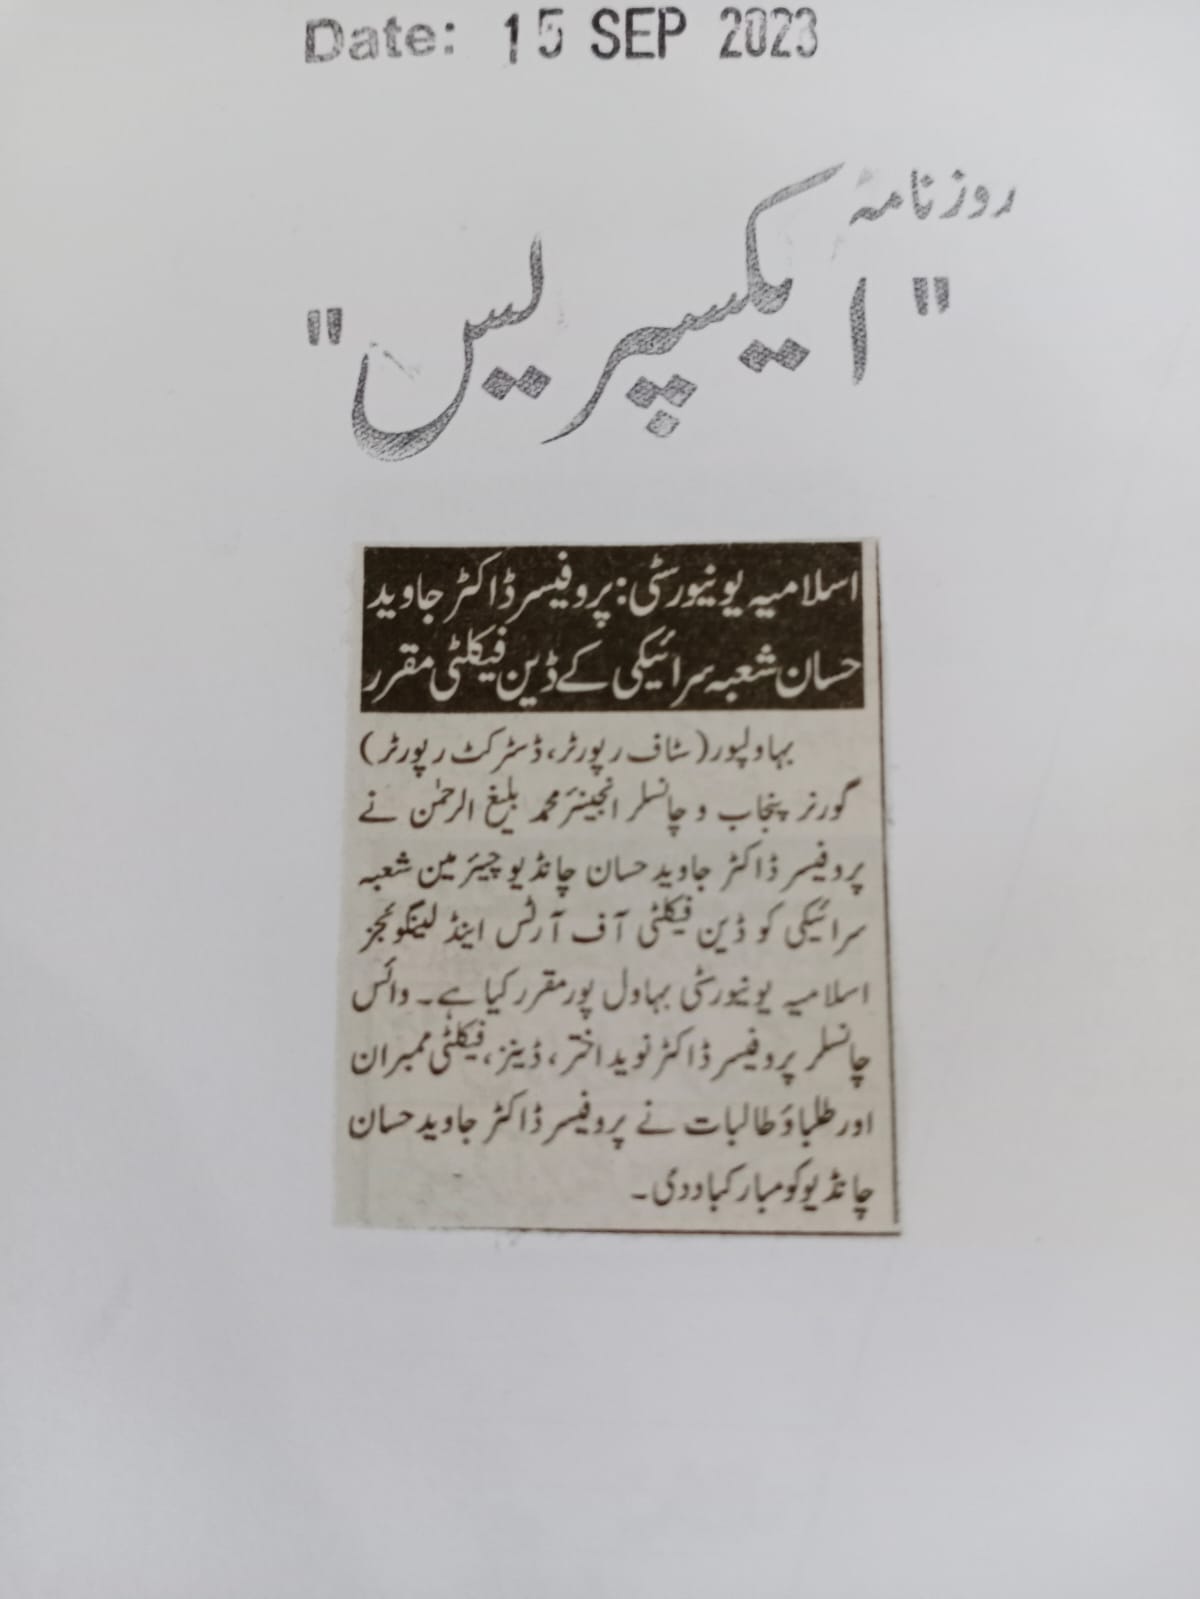 Date: 15 SEP 2023
روزنامہ
"ایکسپریس"
اسلامیہ یونیورسٹی: پروفیسر ڈاکٹر جاوید
حسان شعبہ سرائیکی کے ڈین فیکلٹی مقرر
بہاولپور (سٹاف رپورٹر، ڈسٹرکٹ رپورٹر)
گورنر پنجاب و چانسلر انجینئر محمد بلیغ الرحمٰن نے
پروفیسر ڈاکٹر جاوید حسان چانڈیو چیئرمین شعبہ
سرائیکی کو ڈین فیکلٹی آف آرٹس اینڈ لینگوئجز
اسلامیہ یونیورسٹی بہاول پور مقرر کیا ہے۔ وائس
چانسلر پروفیسر ڈاکٹر نوید اختر، ڈینز، فیکلٹی ممبران
اور طلباؤ طالبات نے پروفیسر ڈاکٹر جاوید حسان
چانڈیو کو مبارکباد دی۔